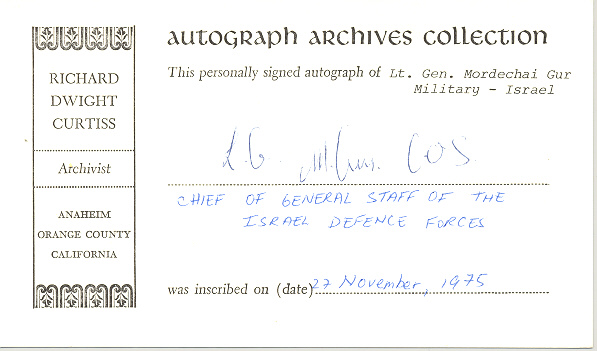 RICHARD
DWIGHT
CURTISS
Archivist
ANAHEIM
ORANGE COUNTY
CALIFORNIA
autograph archives collection
This personally signed autograph of Lt. Gen. Mordechai Gur
Military - Israel
L.G. M. Gur. COS.
CHIEF OF GENERAL STAFF OF THE
ISRAEL DEFENCE FORCES
was inscribed on (date) 27 November, 1975